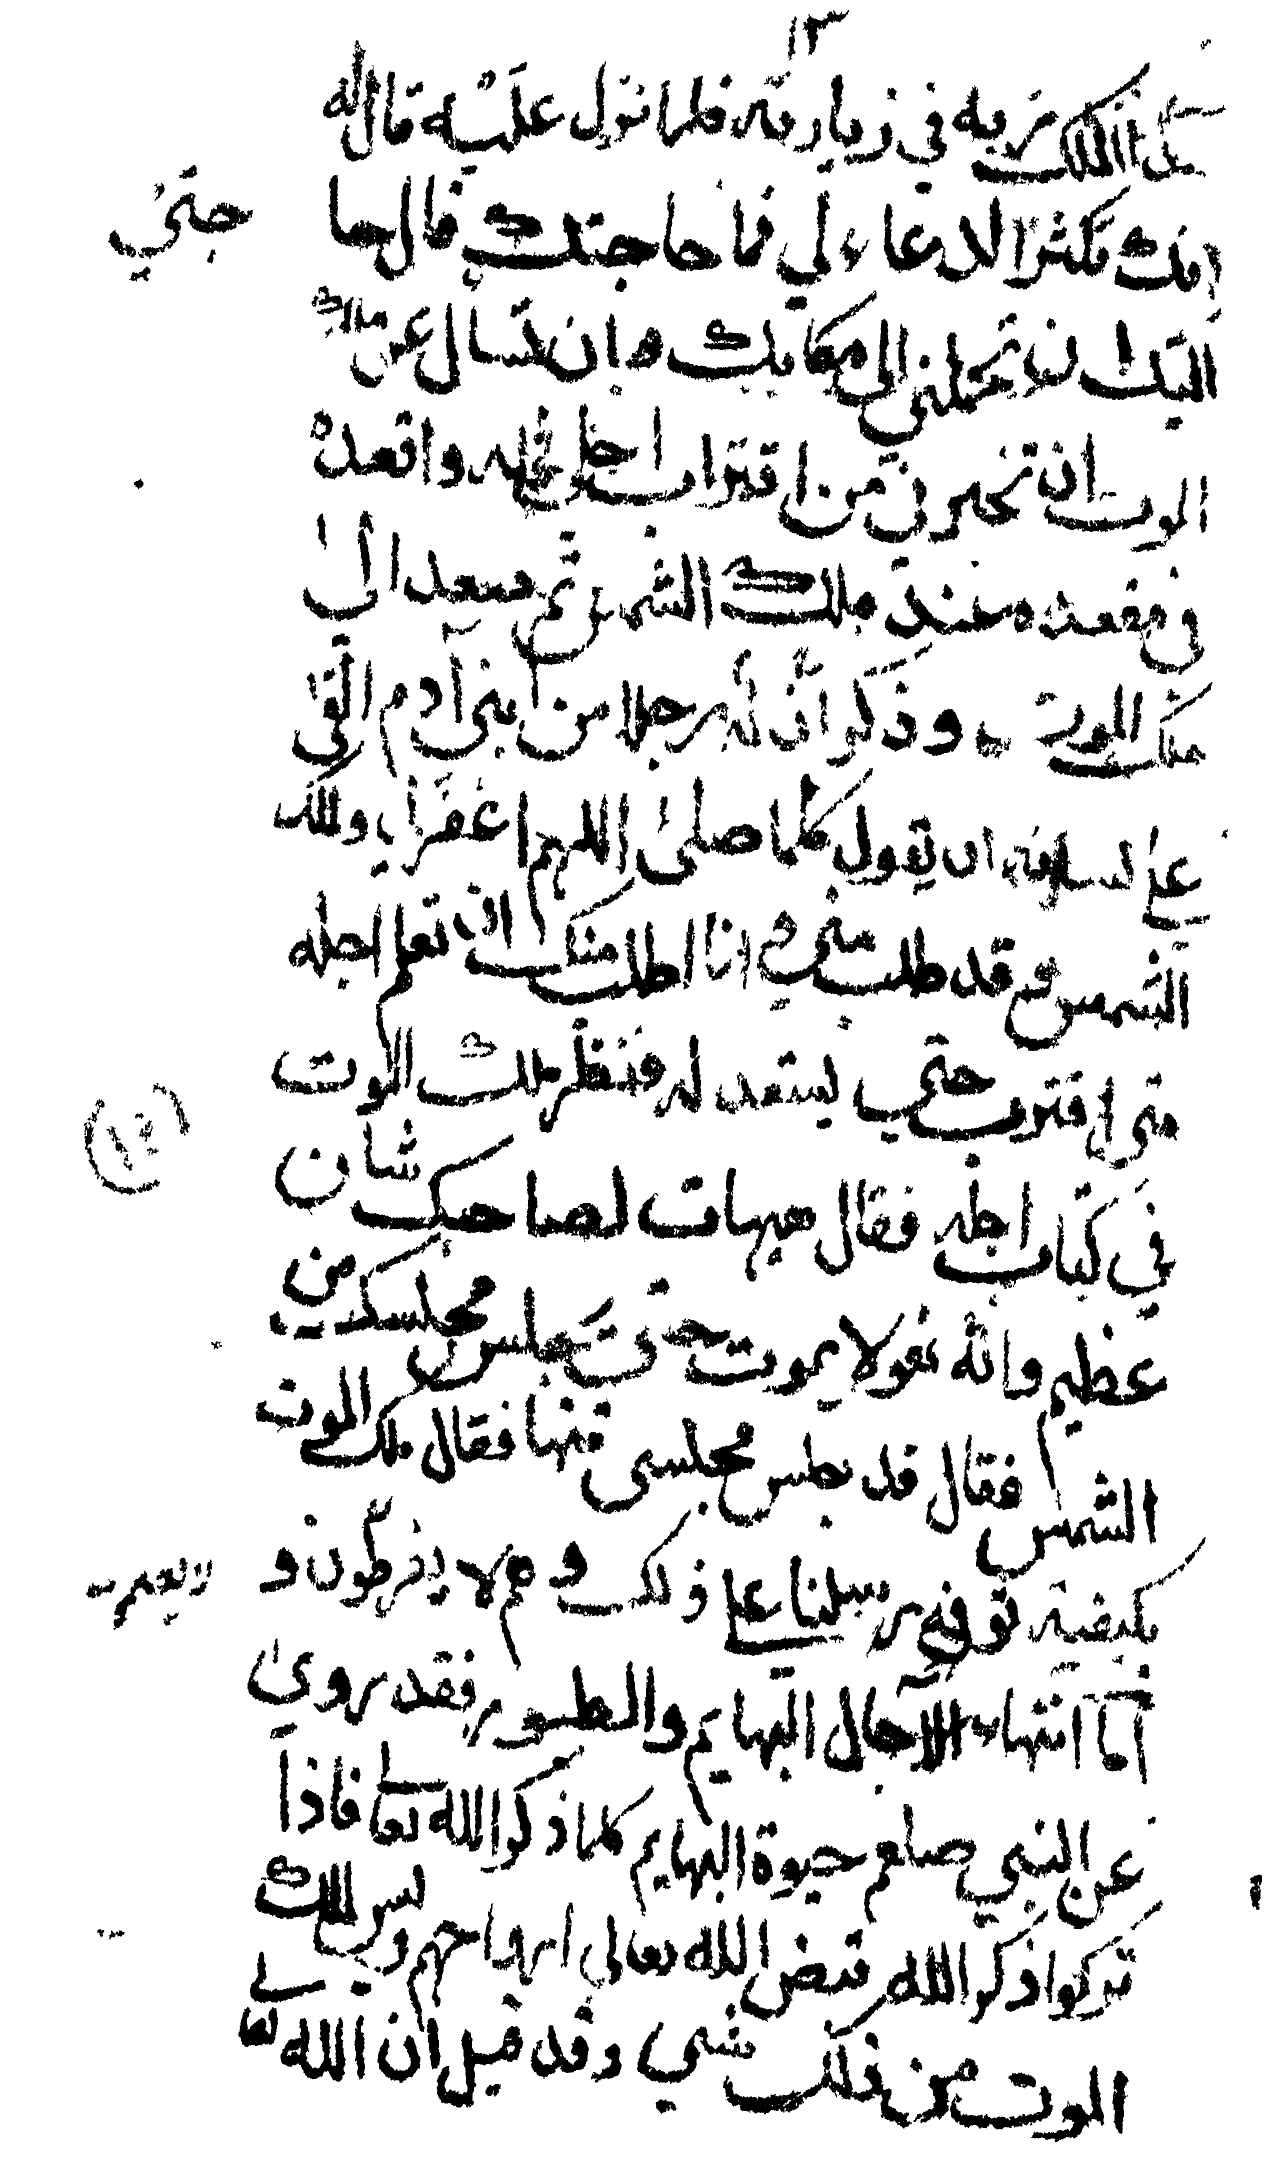 ١٣
الملك ربه في زيارته فلما نزل عليه قال له
انك تكثر الدعاء لي فما حاجتك قال حا
جتي
اليك ان تحملني الى مكانك وان تسأل عن ملك
الموت ان تخبرني من اقتراب اجلي فحمله واقعده
في مقعده عند ملك الشمس ثم صعد الى
ملك الموت وذكر ان رجلا من بني آدم القي
على لسانه ان يقول كلما صلى اللهم اغفر لي ولملك
الشمس وقد طلب مني وانا اطلب منك ان تعلم اجله
متى اقترب حتى يستعد له فنظر ملك الموت
في كتاب اجله فقال هيهات لصاحبك شان
عظيم وانه لا يموت حتى تجلس مجلسك من
الشمس فقال قد جلس مجلسي منها فقال ملك الموت
بكيفية توفيه رسلنا على ذلك وهم لا يفرطون و
اما انتهاء الآجال البهايم والطيور فقد روى
عن النبي صلعم حيوة البهايم كلما ذكر الله تعا فاذا
تركوا ذكر الله قبض الله تعالى ارواحهم وليس لملك
الموت من ذلك شي وقد قيل ان الله تعا